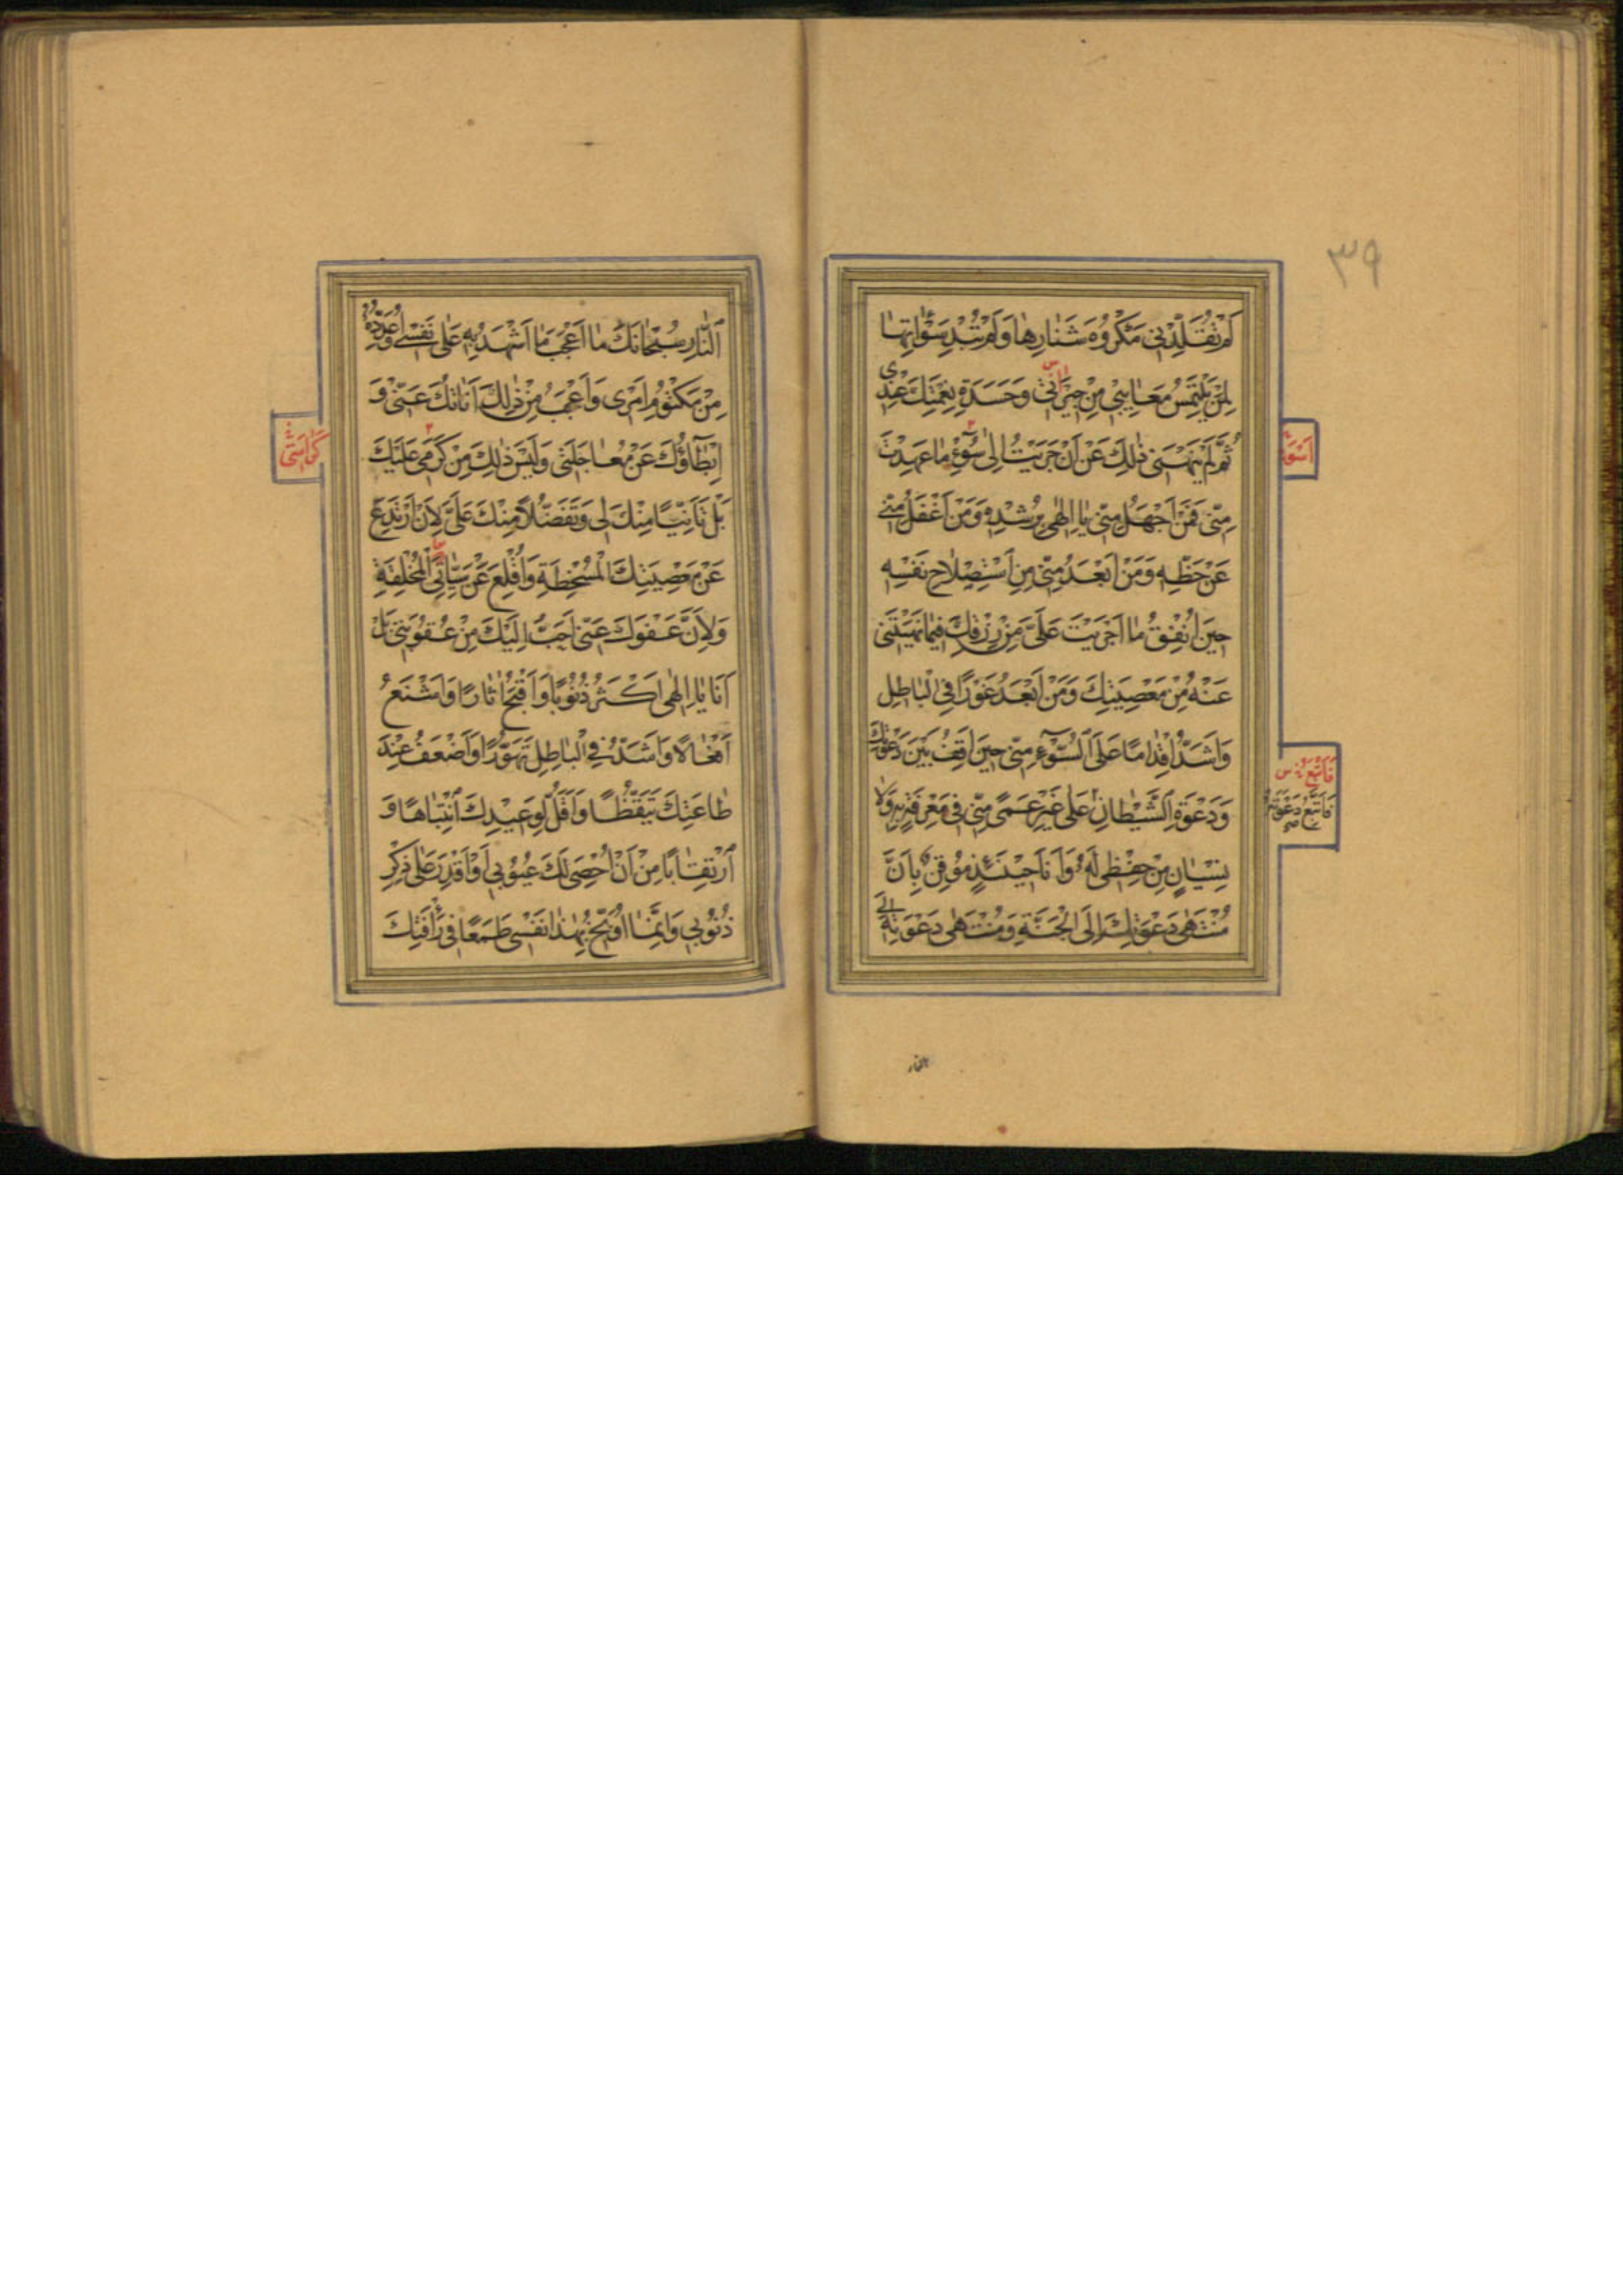 ٣٩
لَمْ تُقَلِّدْنِي مَكْرُوهَ شَنَارِهَا وَلَمْ تُبْدِ سَوْاٰتِهَا
لِمَنْ يَلْتَمِسُ مَعَايِبِي مِنْ جِيرَانِي وَحَسَدَةِ نِعْمَتِكَ عِنْدِي
ثُمَّ لَمْ يَنْهَنِي ذٰلِكَ عَنْ أَنْ جَرَيْتُ إِلٰى سُوۤءِ مَا عَهِدْتَ
مِنِّي فَمَنْ أَجْهَلُ مِنِّي يَا إِلٰهِي بِرُشْدِهِ وَمَنْ أَغْفَلُ مِنِّي
عَنْ حَظِّهِ وَمَنْ أَبْعَدُ مِنِّي مِنِ اسْتِصْلَاحِ نَفْسِهِ
حِينَ أُنْفِقُ مَا أَجْرَيْتَ عَلَيَّ مِنْ رِزْقِكَ فِيمَا نَهَيْتَنِي
عَنْهُ مِنْ مَعْصِيَتِكَ وَمَنْ أَبْعَدُ غَوْرًا فِي الْبَاطِلِ
وَأَشَدُّ إِقْدَامًا عَلَى السُّوۤءِ مِنِّي حِينَ أَقِفُ بَيْنَ دَعْوَتِكَ
وَدَعْوَةِ الشَّيْطَانِ عَلٰى غَيْرِ عَمًى مِنِّي فِي مَعْرِفَةٍ بِهِ وَلَا
نِسْيَانٍ مِنْ حِفْظِي لَهُ وَأَنَا حِينَئِذٍ مُوقِنٌ بِأَنَّ
مُنْتَهٰى دَعْوَتِكَ إِلَى الْجَنَّةِ وَمُنْتَهٰى دَعْوَتِهِ إِلَى
فَاَتَّبِعُ
فَاَتَّبِعُ دَعْوَتَهُ
النار
النَّارِ سُبْحَانَكَ مَا أَعْجَبَ مَا أَشْهَدُ بِهِ عَلٰى نَفْسِي وَأُعَدِّدُهُ
مِنْ مَكْتُومِ أَمْرِي وَأَعْجَبُ مِنْ ذٰلِكَ أَنَاتُكَ عَنِّي وَ
إِبْطَاۤؤُكَ عَنْ مُعَاجَلَتِي وَلَيْسَ ذٰلِكَ مِنْ كَرَمِي عَلَيْكَ
بَلْ تَأَنِّيًا مِنْكَ لِي وَتَفَضُّلًا مِنْكَ عَلَيَّ لِأَنْ أَرْتَدِعَ
عَنْ مَعْصِيَتِكَ الْمُسْخِطَةِ وَأُقْلِعَ عَنْ سَيِّئَاتِي الْمُخْلِقَةِ
وَلِأَنَّ عَفْوَكَ عَنِّي أَحَبُّ إِلَيْكَ مِنْ عُقُوبَتِي بَلْ
أَنَا يَا إِلٰهِي أَكْثَرُ ذُنُوبًا وَأَقْبَحُ اٰثَارًا وَأَشْنَعُ
أَفْعَالًا وَأَشَدُّ فِي الْبَاطِلِ تَهَوُّرًا وَأَضْعَفُ عِنْدَ
طَاعَتِكَ تَيَقُّظًا وَأَقَلُّ لِوَعِيدِكَ انْتِبَاهًا وَ
ارْتِقَابًا مِنْ أَنْ أُحْصِيَ لَكَ عُيُوبِي أَوْ أَقْدِرَ عَلٰى ذِكْرِ
ذُنُوبِي وَإِنَّمَا أُوَبِّخُ بِهٰذَا نَفْسِي طَمَعًا فِي رَأْفَتِكَ